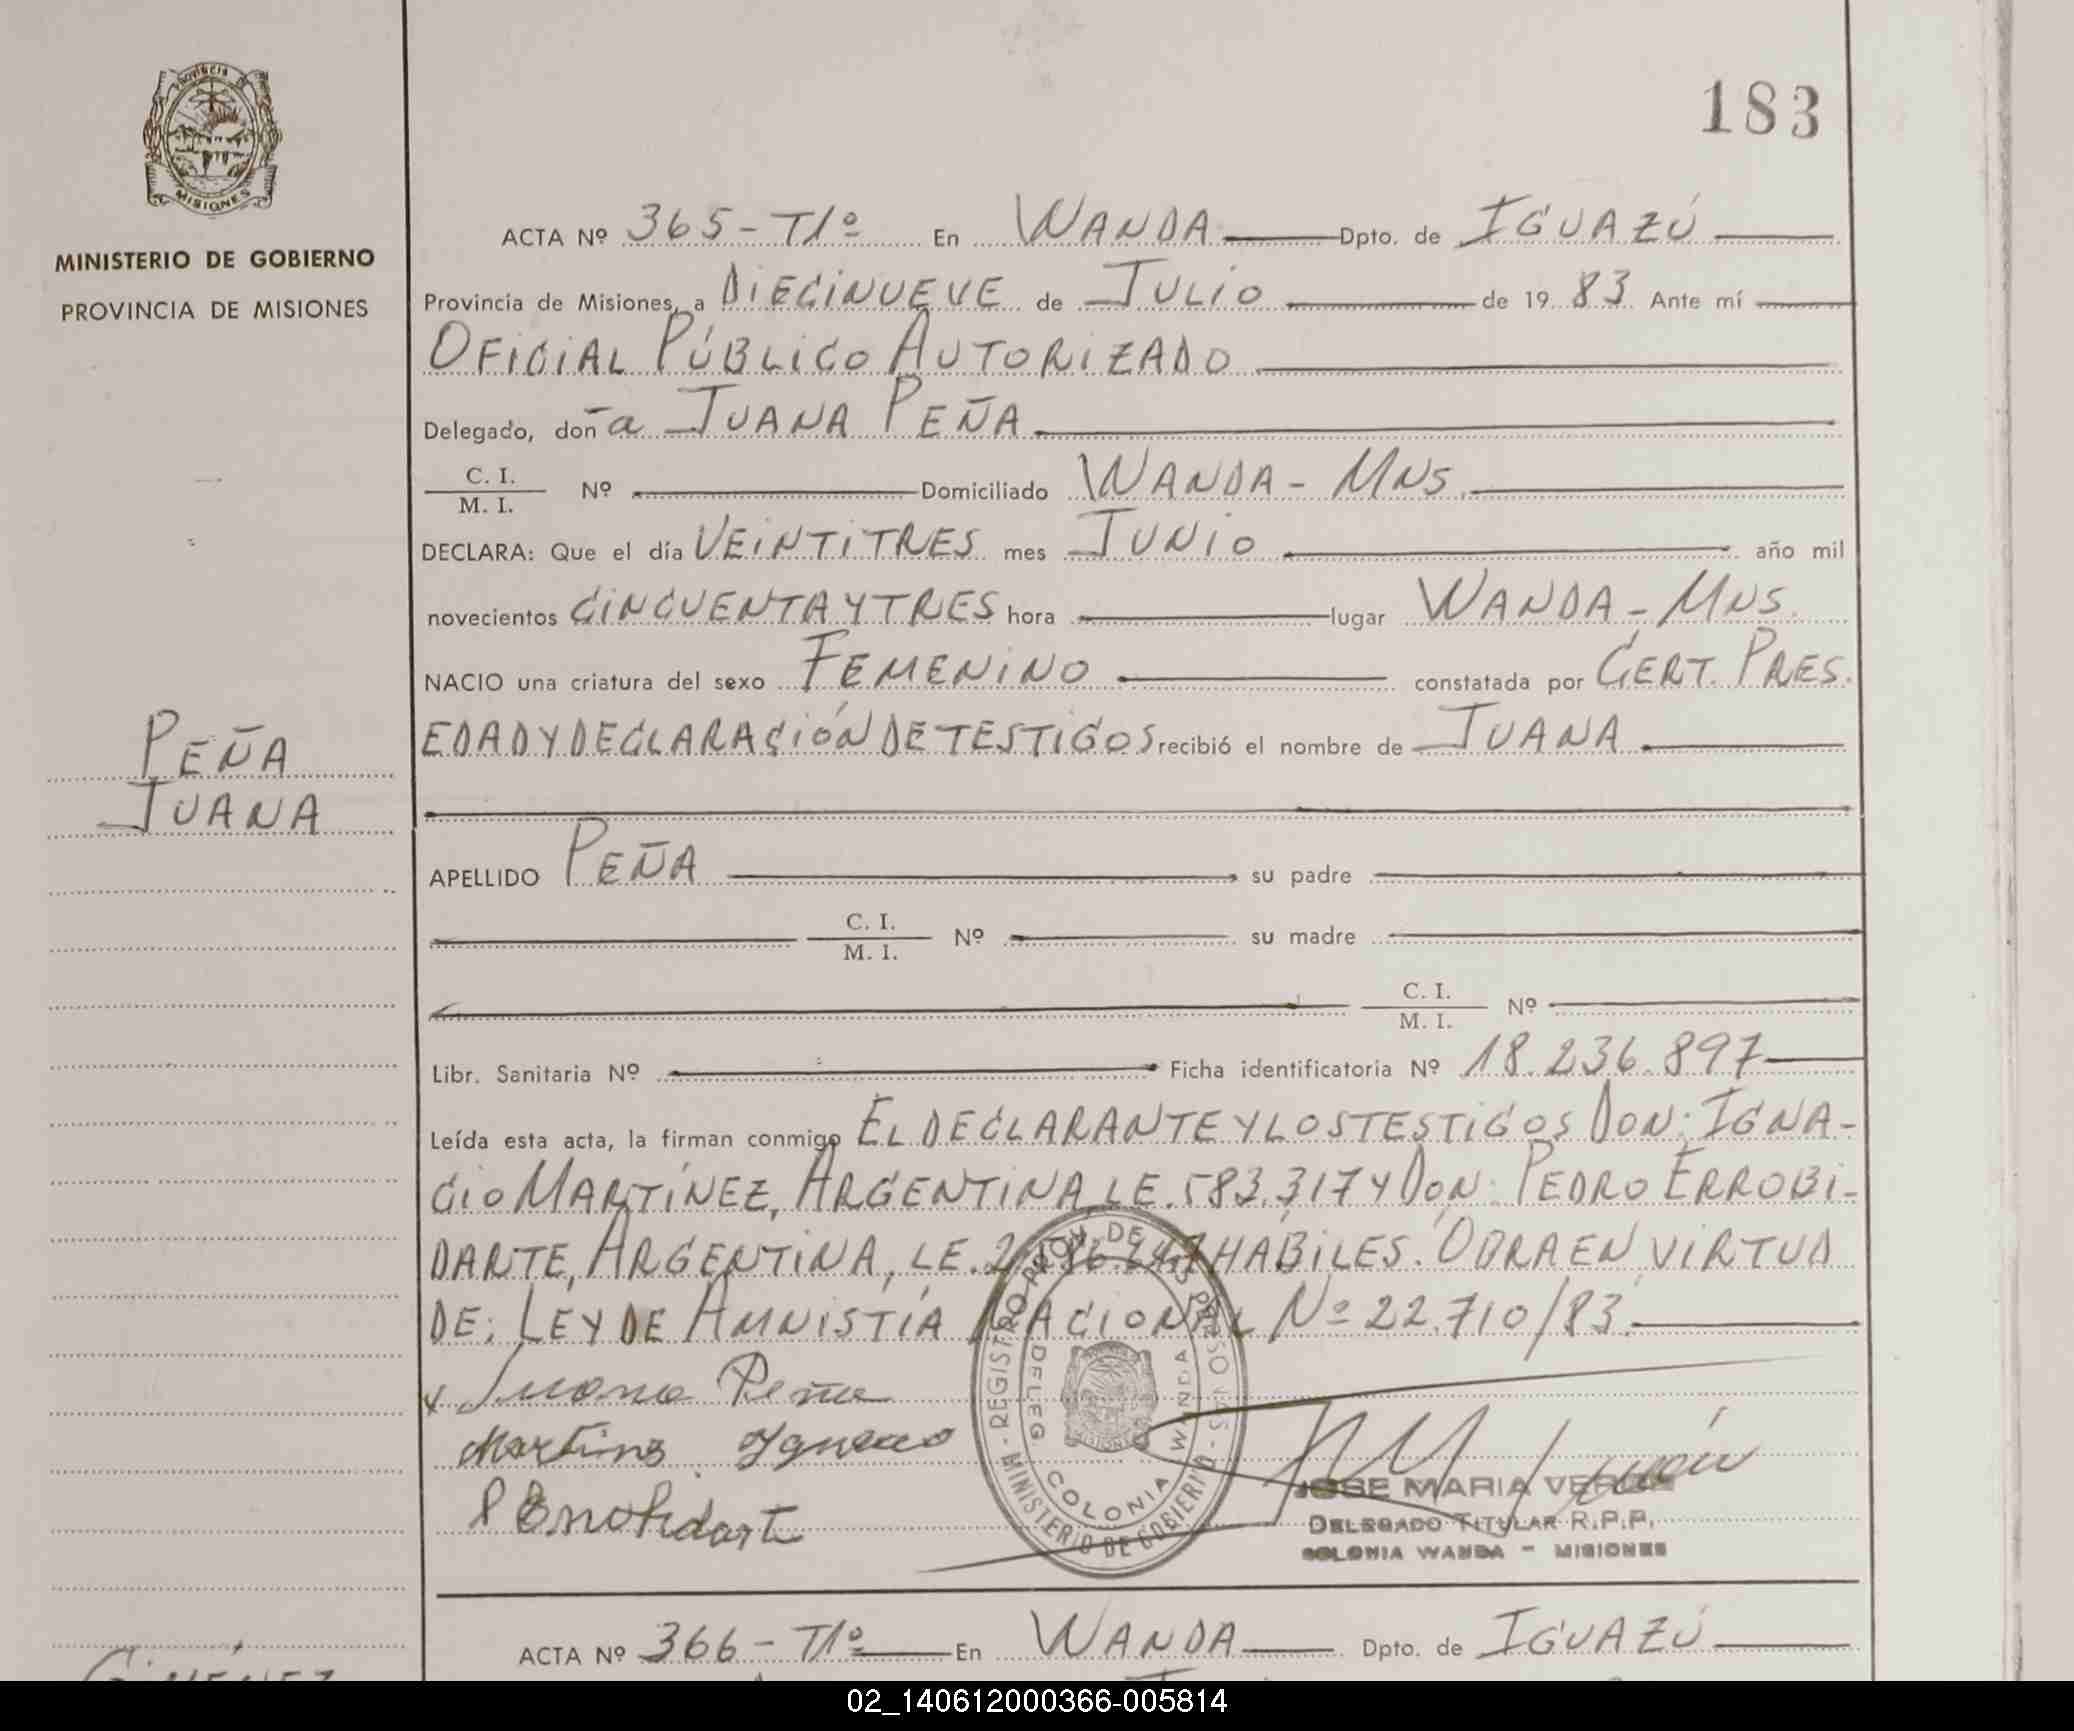 Provincia de
MISIONES
MINISTERIO DE GOBIERNO
PROVINCIA DE MISIONES
183
ACTA Nº 365-T1º En WANDA Dpto. de IGUAZÚ
Provincia de Misiones, a DIECINUEVE de JULIO de 1983 Ante mí
OFICIAL PÚBLICO AUTORIZADO
Delegado, doña JUANA PEÑA
C. I.
M. I. Nº Domiciliado WANDA - MNS.
DECLARA: Que el día VEINTITRES mes JUNIO año mil
novecientos CINCUENTA Y TRES hora lugar WANDA - MNS.
NACIO una criatura del sexo FEMENINO constatada por CERT. PRES.
EDAD Y DECLARACIÓN DE TESTIGOS recibió el nombre de JUANA
PEÑA
JUANA
APELLIDO PEÑA su padre
C. I.
M. I. Nº su madre
C. I.
M. I. Nº
Libr. Sanitaria Nº Ficha identificatoria Nº 18.236.897
Leída esta acta, la firman conmigo EL DECLARANTE Y LOS TESTIGOS DON: IGNA-
CIO MARTÍNEZ, ARGENTINA, LE. 583.317 Y DON: PEDRO ERROBI-
DARTE, ARGENTINA, LE. HÁBILES. OBRA EN VIRTUD
DE: LEY DE AMNISTÍA NACIONAL Nº 22.710/83.
Juana Peña
Martines Ygnacio
P Errobidart
REGISTRO PROV. DE LAS PERSONAS
MINISTERIO DE GOBIERNO
DELEG. COLONIA WANDA
MISIONES
JOSE MARIA
DELEGADO TITULAR R.P.P.
COLONIA WANDA - MISIONES
ACTA Nº 366-T1º En WANDA Dpto. de IGUAZÚ
GIMÉNEZ
02_140612000366-005814